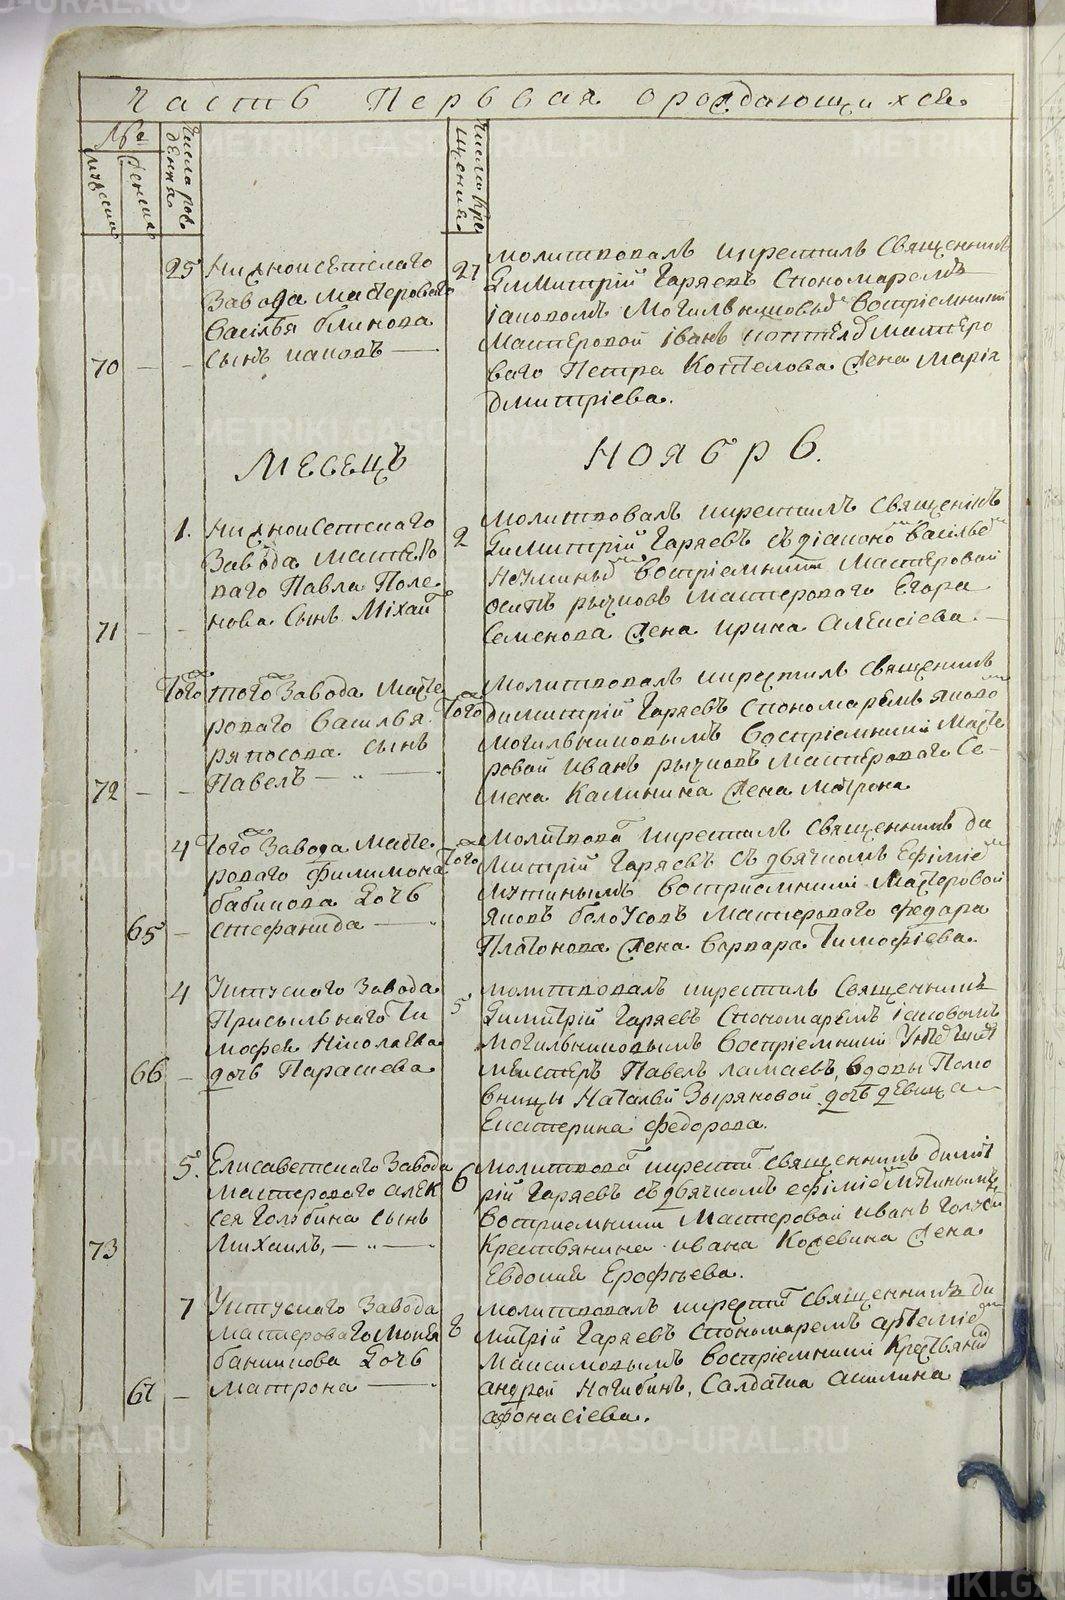 Часть Первая о раждающихся.
№е
мужска
женска
Числа рож
дения
Число кре
щения
25
Нижноисетского
завода мастерового
василья блинова
сынъ иаковъ —
70 — —
27
молитвовалъ икрестилъ Священникъ
Димитрий Гаряевъ Спономаремъ
іаковомъ Могильниковымъ воспріемники
мастеровой іванъ мастеро
ваго Петра Котелова жена Маріа
Дмитріева.
Месецъ Ноябрь.
1.
Нижноисетскаго
Завода мастеро
ваго Павла Поле
нова Сынъ Міхаил
71 — —
2
молитвовалъ икрестилъ Священникъ
Димитрій Гаряевъ съ діакономъ Василье
воспріемники мастеровой
осипъ рычковъ мастероваго Егора
Семенова жена ирина Алексіева. —
Того
того Завода Масте
роваго Василья
ряпосова сынъ
Павелъ — „ —
72 — —
Того
Молитвовалъ икрестилъ Священникъ
димитрій Гаряевъ Спономаремъ яково
могильниковымъ Воспріемники Масте
ровой иванъ рычковъ мастероваго Се-
мена Калинина жена Матрона
4
Того Завода Масте
роваго Филимона
бабинова Дочь
стефанида — „
65 —
Того
молитвова икрестилъ Священникъ Ди
митрій Гаряевъ съ дьячкомъ Ефіміе
мутинымъ воспріемники Мастеровой
яковъ белоусовъ Мастероваго федара
Платонова жена варвара Тимофіева.
4
Уктуского Завода
Присыльнаго Ти
мофея Ніколаева
дочь Парасиева
66 —
5
молитвовалъ икрестилъ Священникъ
Димитрій Гаряевъ Спономаремъ іаковомъ
могильниковымъ воспріемники
меистеръ Павелъ ламаевъ, вдовы Попо
вницы Натальи Зыряновой дочь девица
Екатерина федорова.
5.
Елисаветскаго Завода
мастероваго Алек
сея Голубина сынъ
Михаилъ, — „ —
73
6
молитвова икрести священникъ димит
рій Гаряевъ съ дьячкомъ ефіміемъ мутинымъ
воспріемники Мастеровой иванъ Голуби
Крестьянина ивана Кожевина жена
Евдокия Ерофѣева.
7
Уктускаго Завода
мастероваго Мокея
банникова Дочь
Матрона — „
67 —
8
молитвовалъ икрести священникъ Ди
митрій Гаряевъ спономаремъ артеміе
Максимовымъ воспріемники Крестьяни
андрей Нагибинъ, Салдатка акилина
афонасіева.